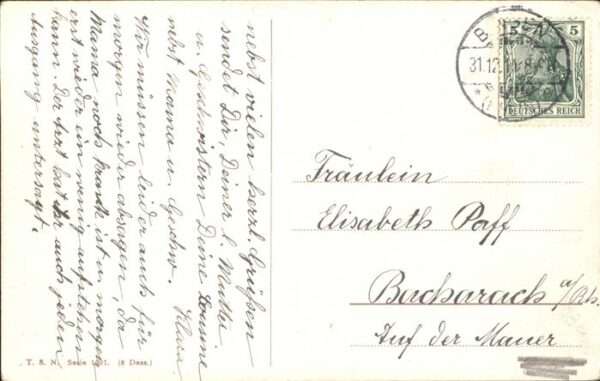 nebst vielen herzl. Grüßen
sendet Dir, Deiner l. Mutter
u. Geschwistern Deine Louise
nebst Mama u. Geschw.
Wir müssen leider auch für
morgen wieder absagen, da
Mama noch krank ist u. morgen
erst wieder ein wenig aufstehen
kann. Der Arzt hat ihr auch jeden
Ausgang untersagt.
BINGEN
31.12.
5 5
DEUTSCHES REICH
Fräulein
Elisabeth Paff
Bacharach a/Rh.
Auf der Mauer
T. S. N. Serie (6 Dess.)